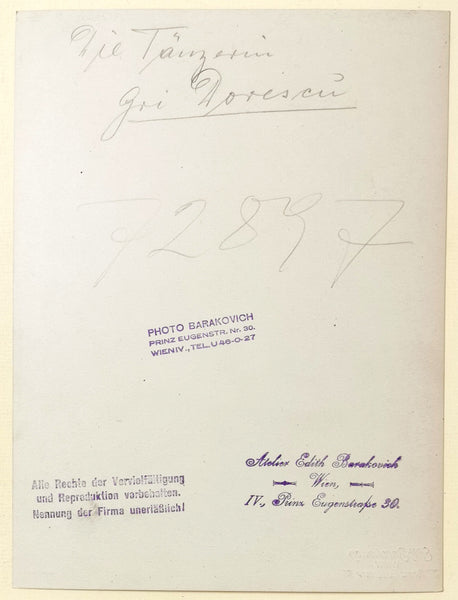 Die Tänzerin
Gri Dorescu
72897
PHOTO BARAKOVICH
PRINZ EUGENSTR. Nr. 30.
WIEN IV., TEL. U 46-0-27
Atelier Edith Barakovich
Wien,
IV., Prinz Eugenstraße 30.
Alle Rechte der Vervielfältigung
und Reproduktion vorbehalten.
Nennung der Firma unerläßlich!